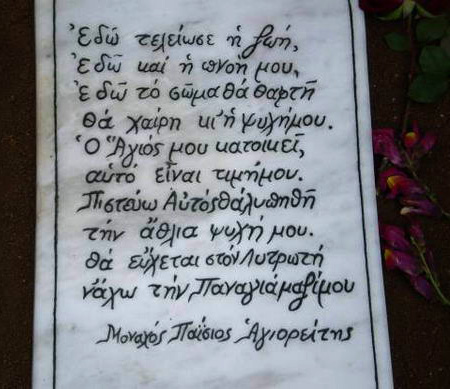 Ἐδῶ τελείωσε ἡ ζωή,
Ἐδῶ καί ἡ πνοή μου,
Ἐδῶ τό σῶμα θά θαφτῆ
θά χαίρη κι' ἡ ψυχή μου.
Ὁ Ἅγιός μου κατοικεῖ,
αὐτό εἶναι τιμή μου.
Πιστεύω Αὐτός θά λυπηθῆ
τήν ἄθλια ψυχή μου.
θά εὔχεται στόν Λυτρωτή
νἄχω τήν Παναγιά μαζί μου
Μοναχός Παΐσιος Ἁγιορείτης